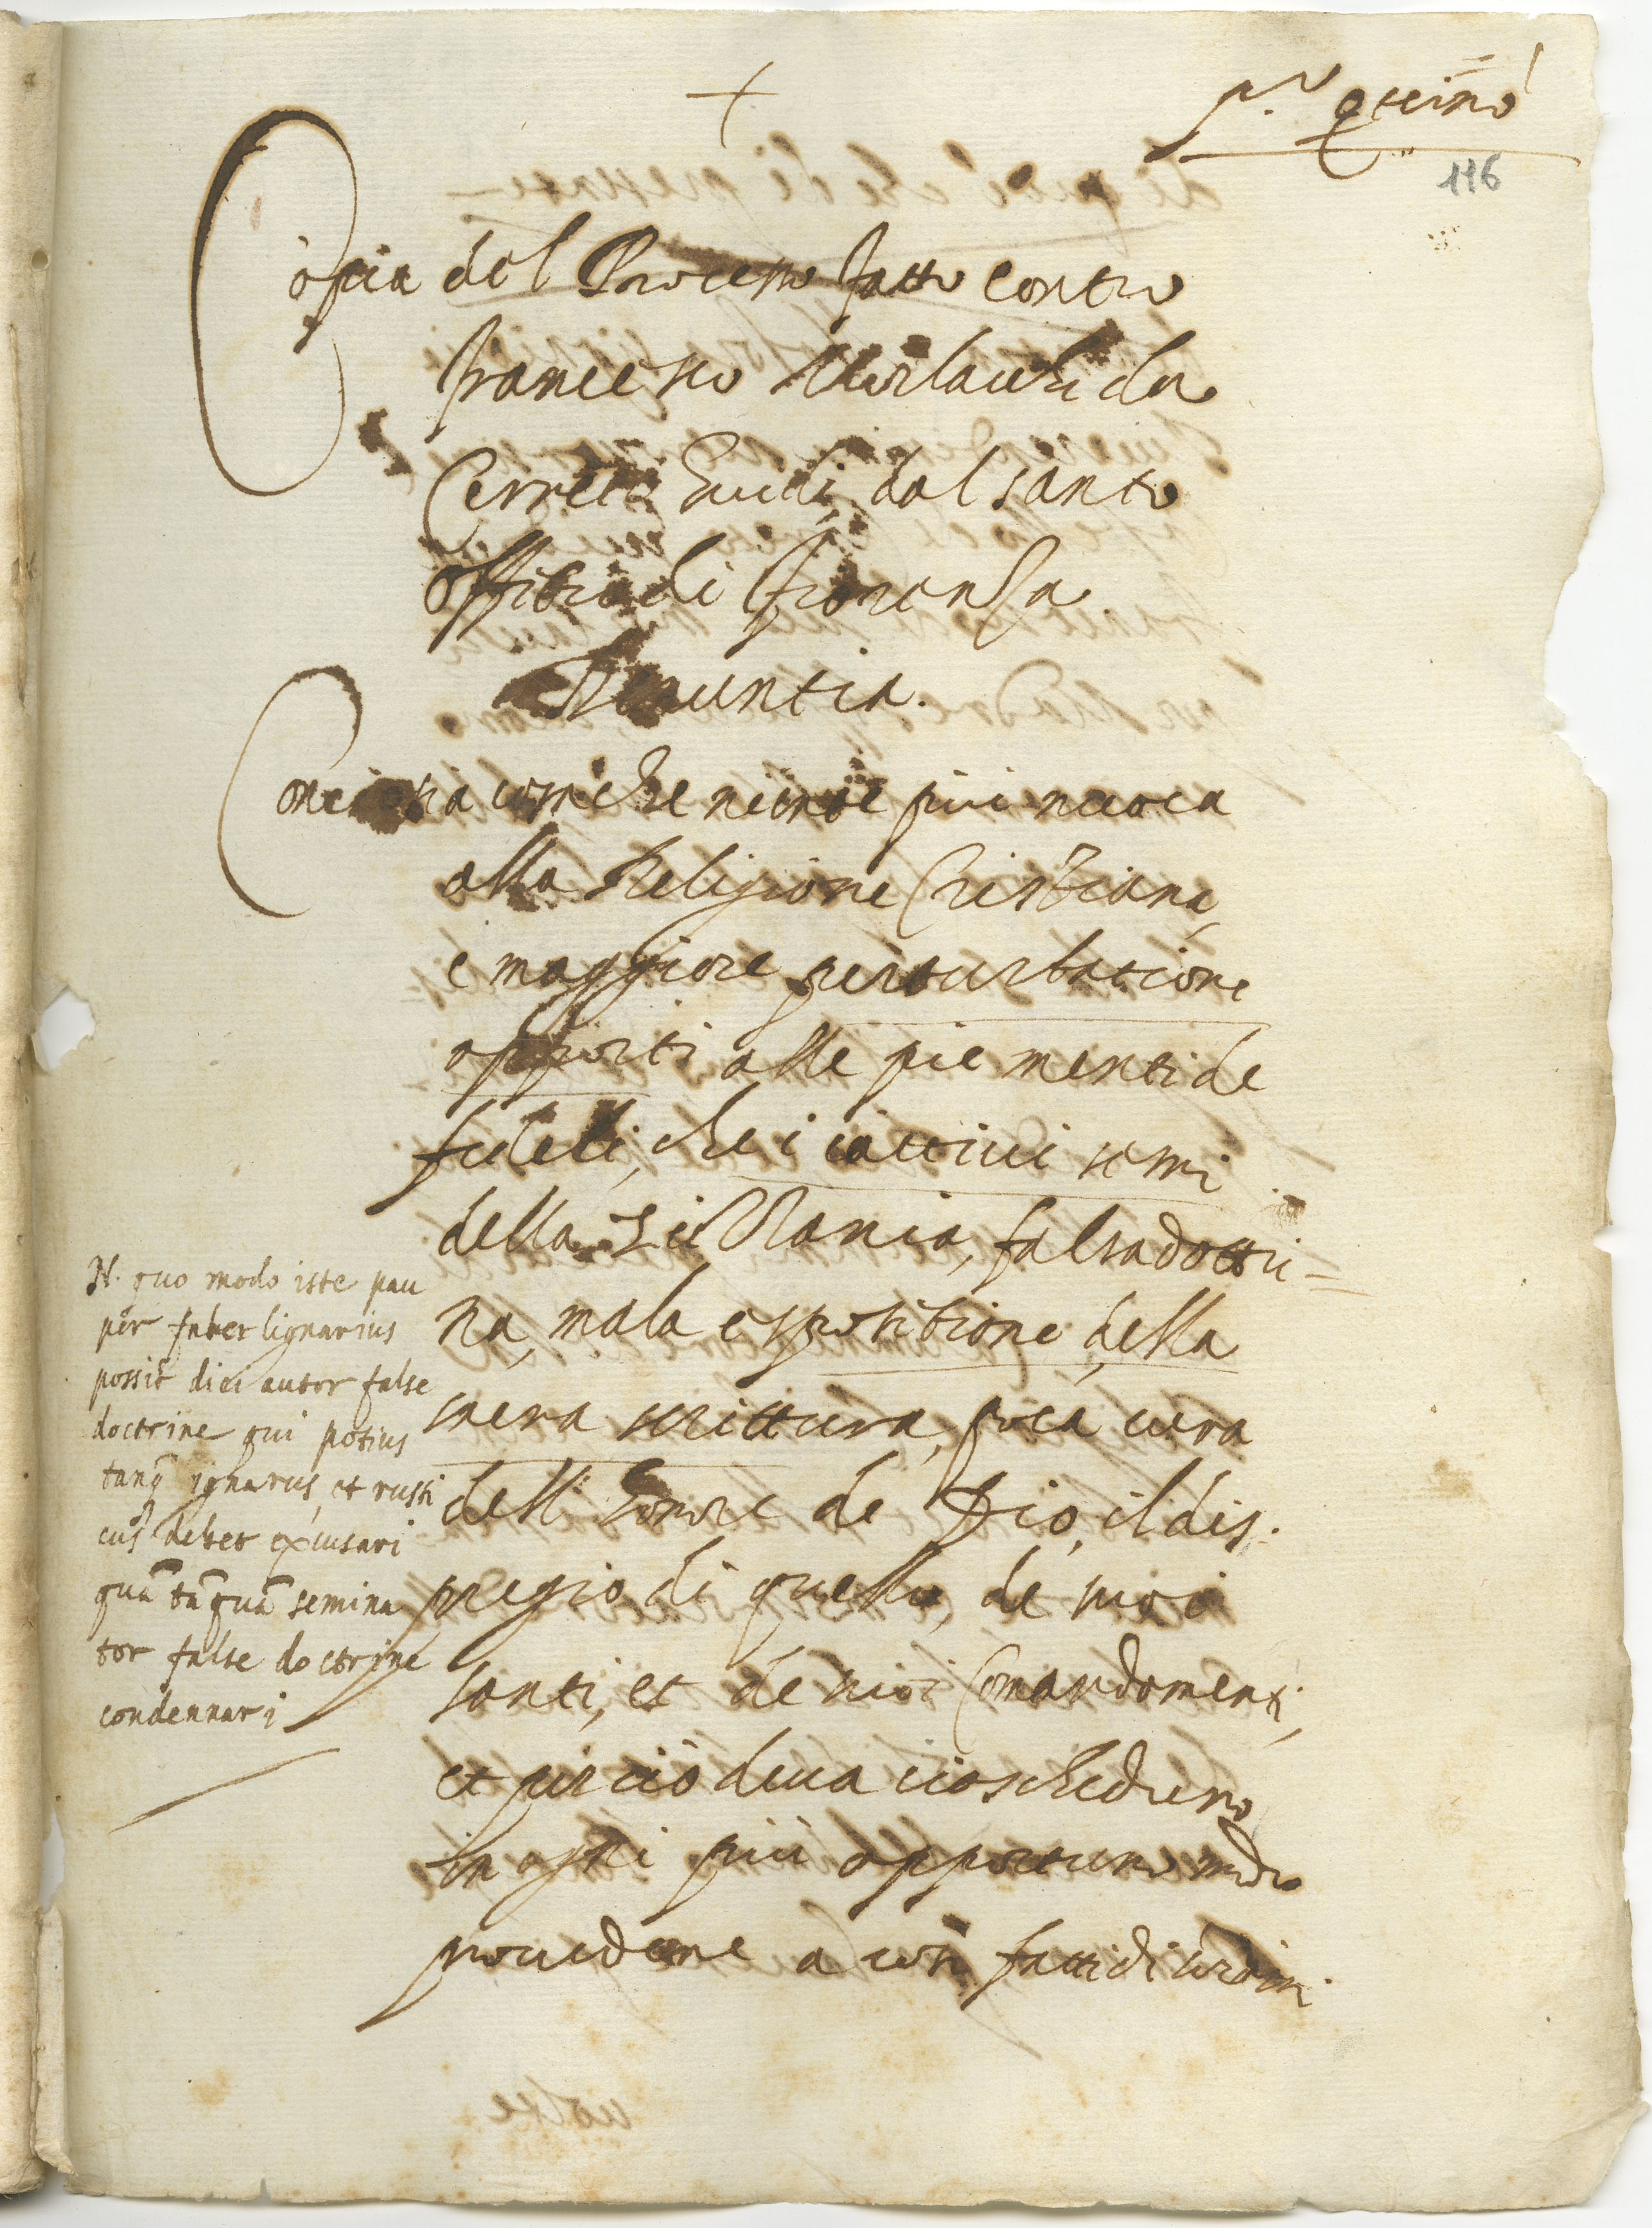 +
116
Copia del Processo fatto contro
Francesco da
Cerreto Guidi, dal santo
Offitio di Fiorenza
Denuntia.
Conciosia cosa che niuna più nuoca
alla Religione Cristiana,
e maggiore perturbatione
apporti alle pie menti de
fedeli, che i cattivi semi
della Zizania, falsa dottri=
na, mala espositione della
sacra scrittura, poca cura
dell' honore de Dio, il dis:
pregio di quello, de suoi
santi, et de suoi Comandamenti,
et perciò deva ciascheduno
in ogni più opportuno modo
provedere a così fatti disordini.
N. quo modo iste pau
per faber lignarius
possit dici autor false
doctrine qui potius
tanq ignarus, et rusti
cus debet excusari
quā tāquā semina
tor false doctrine
condennari